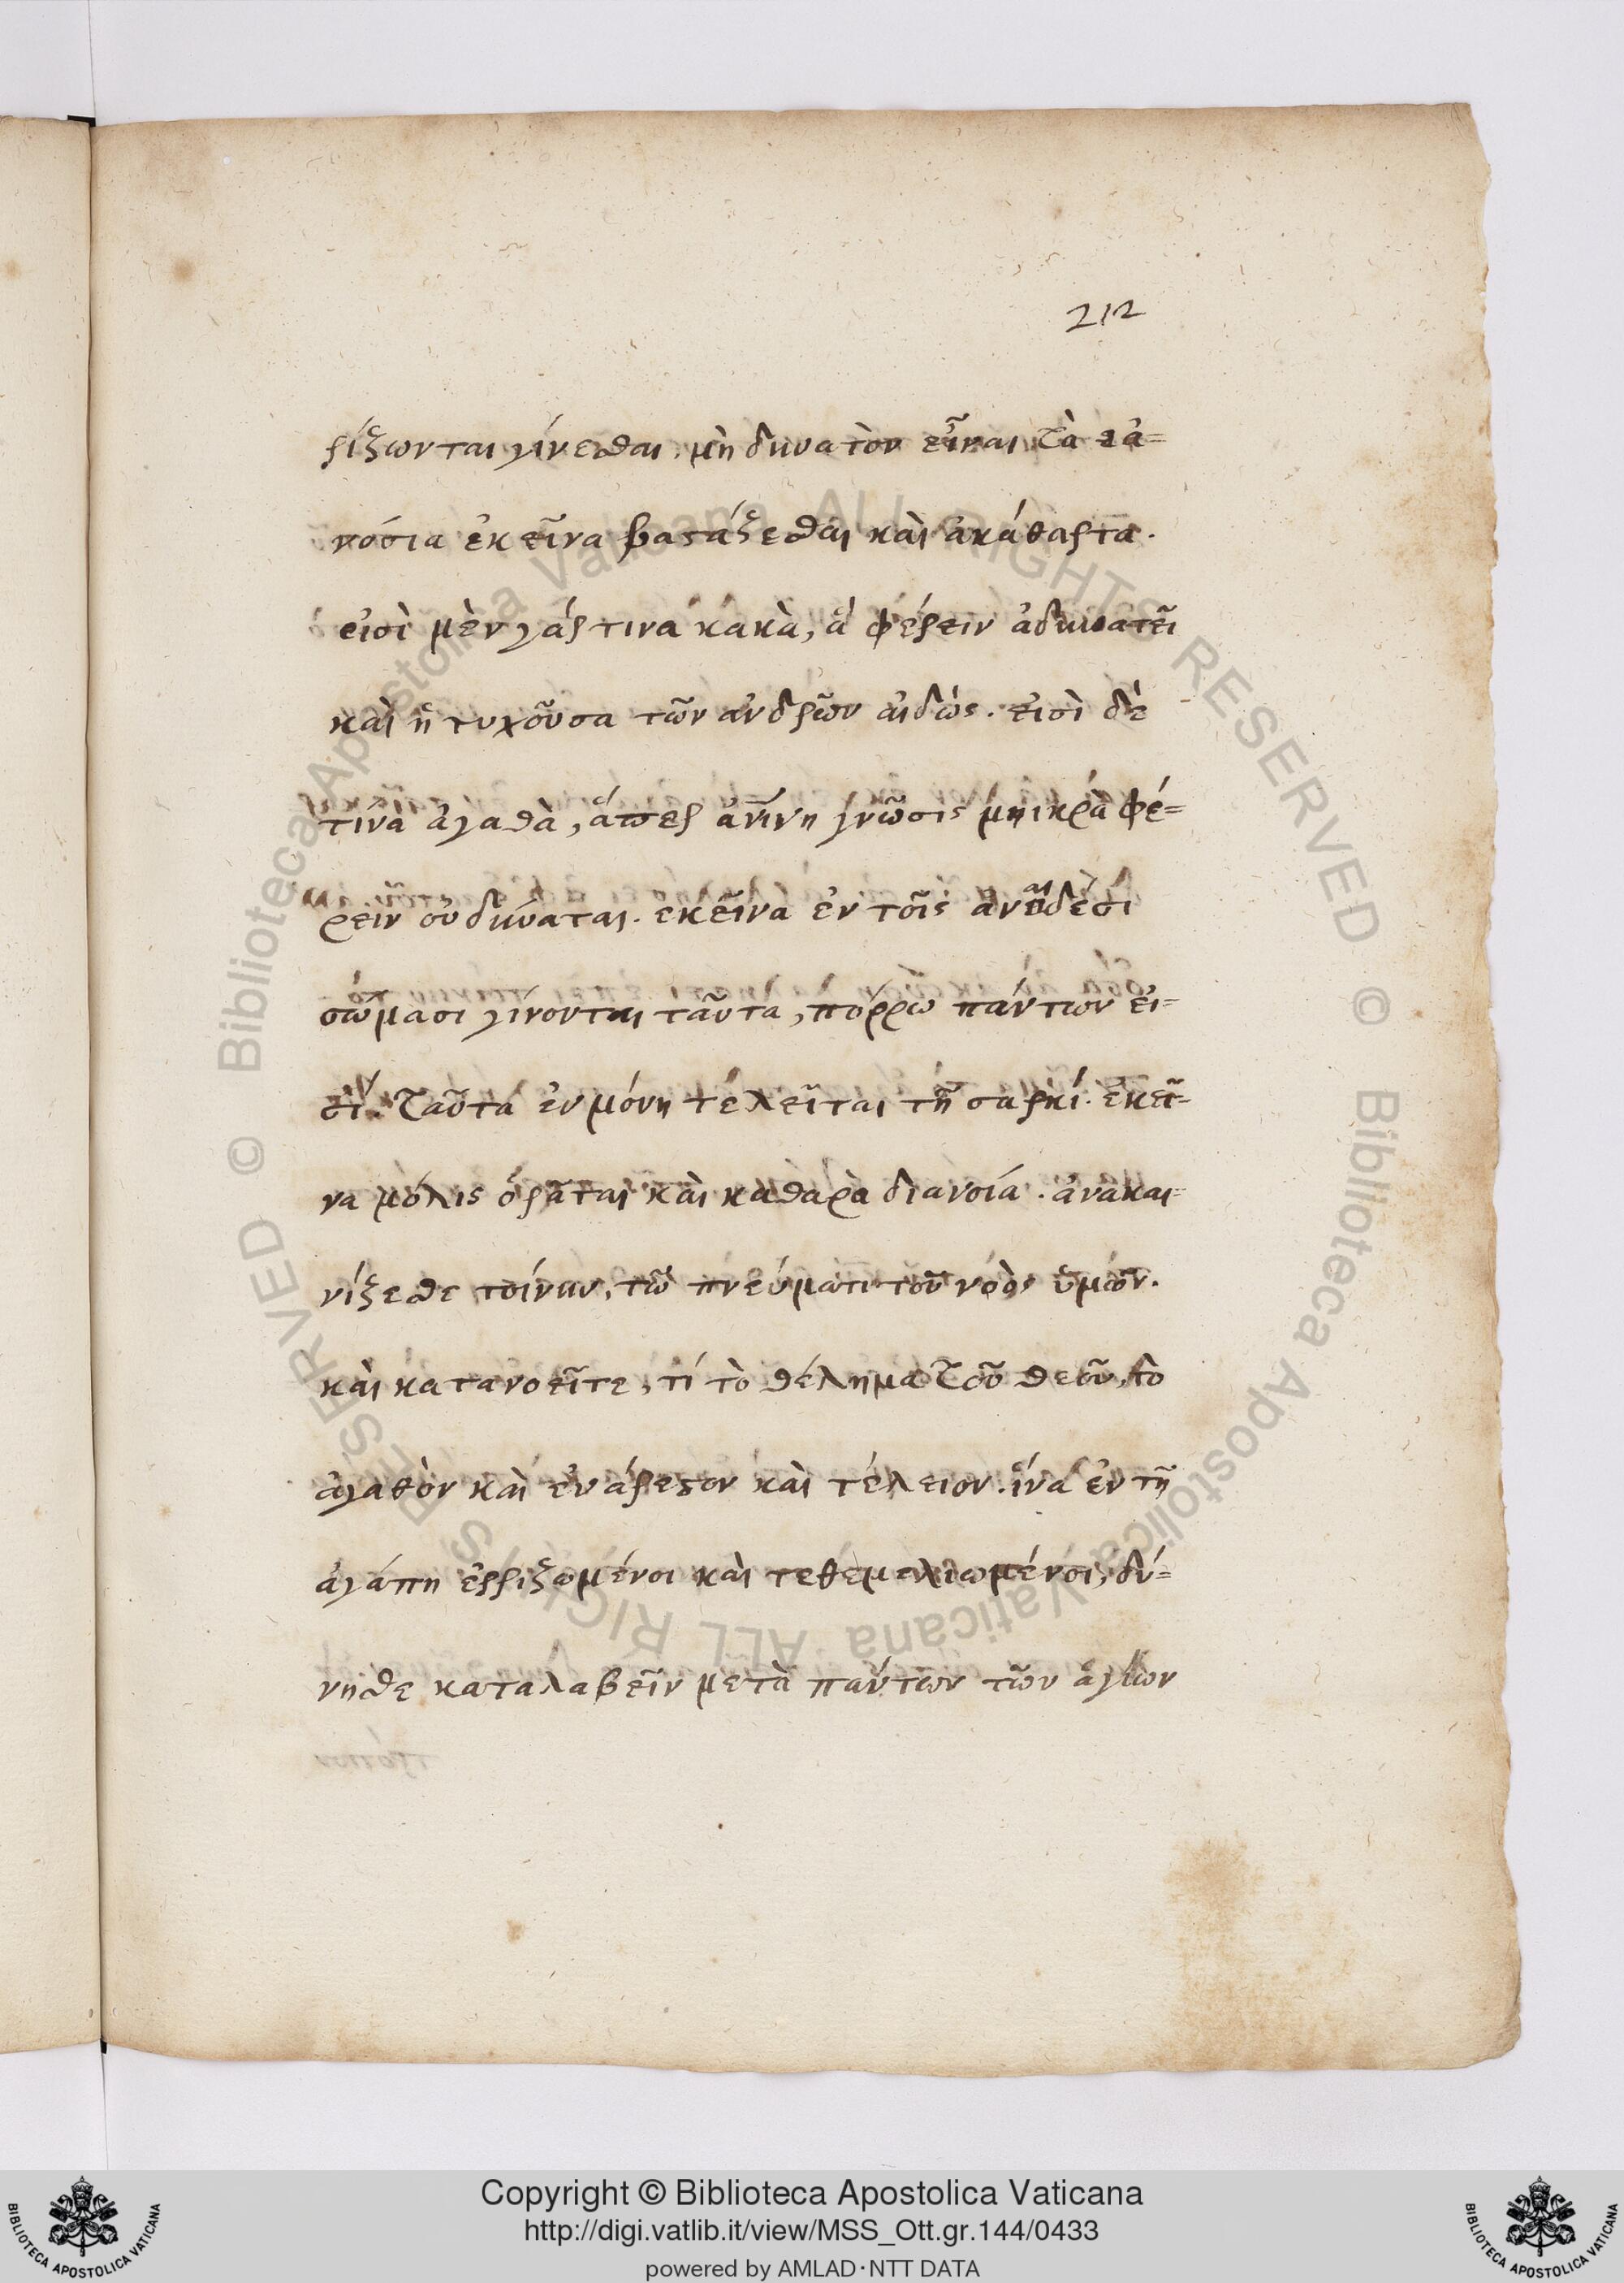 212
ρίζωνται γίνεσθαι. μὴ δυνατὸν εἶναι τὰ ἐα=
νόσια ἐκεῖνα βαστάζεσθαι καὶ ἀκάθαρτα.
εἰσὶ μὲν γάρ τινα κακὰ, ἃ φέρειν ἀδυνατεῖ
καὶ ἡ τυχοῦσα τῶν ἀνδρῶν αἰδώς. εἰσὶ δὲ
τινὰ ἀγαθὰ, ἅπερ γνῶσις μηικρὰ φέ=
ρειν οὐ δύναται. ἐκεῖνα ἐν τοῖς
σώμασι γίνονται ταῦτα, πόρρω πάντων εἰ=
σί. ταῦτα ἐν μόνη τελεῖται τῆ σαρκί. ἐκεῖ=
να μόλις ὁρᾶται καὶ καθαρὰ διανοία. ἀνακαι=
νίζεσθε τοίνυν, τῶ πνεύματι τοῦ νόος ὑμῶν.
καὶ κατανοεῖτε, τί τὸ θέλημα τοῦ θεοῦ, τὸ
ἀγαθὸν καὶ εὐάρεστον καὶ τέλειον. ἵνα ἐν τῆ
ἀγάπη ἐρριζωμένοι καὶ τεθεμελιωμένοι, δύ=
νησθε καταλαβεῖν μετὰ πάντων τῶν ἁγίων
Copyright © Biblioteca Apostolica Vaticana
http://digi.vatlib.it/view/MSS_Ott.gr.144/0433
powered by AMLAD·NTT DATA
© Biblioteca Apostolica Vaticana ALL RIGHTS RESERVED © Biblioteca Apostolica Vaticana ALL RIGHTS RESERVED
BIBLIOTECA APOSTOLICA VATICANA
BIBLIOTECA APOSTOLICA VATICANA